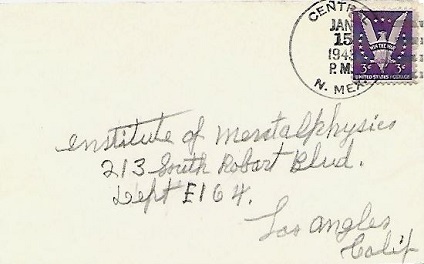 CENTRAL
JAN
15
1943
P.M.
N. MEX.
WIN THE WAR
3¢ 3¢
UNITED STATES POSTAGE
Institute of Mentalphysics
213 South Robart Blvd.
Dept E164.
Los Angles,
Calif